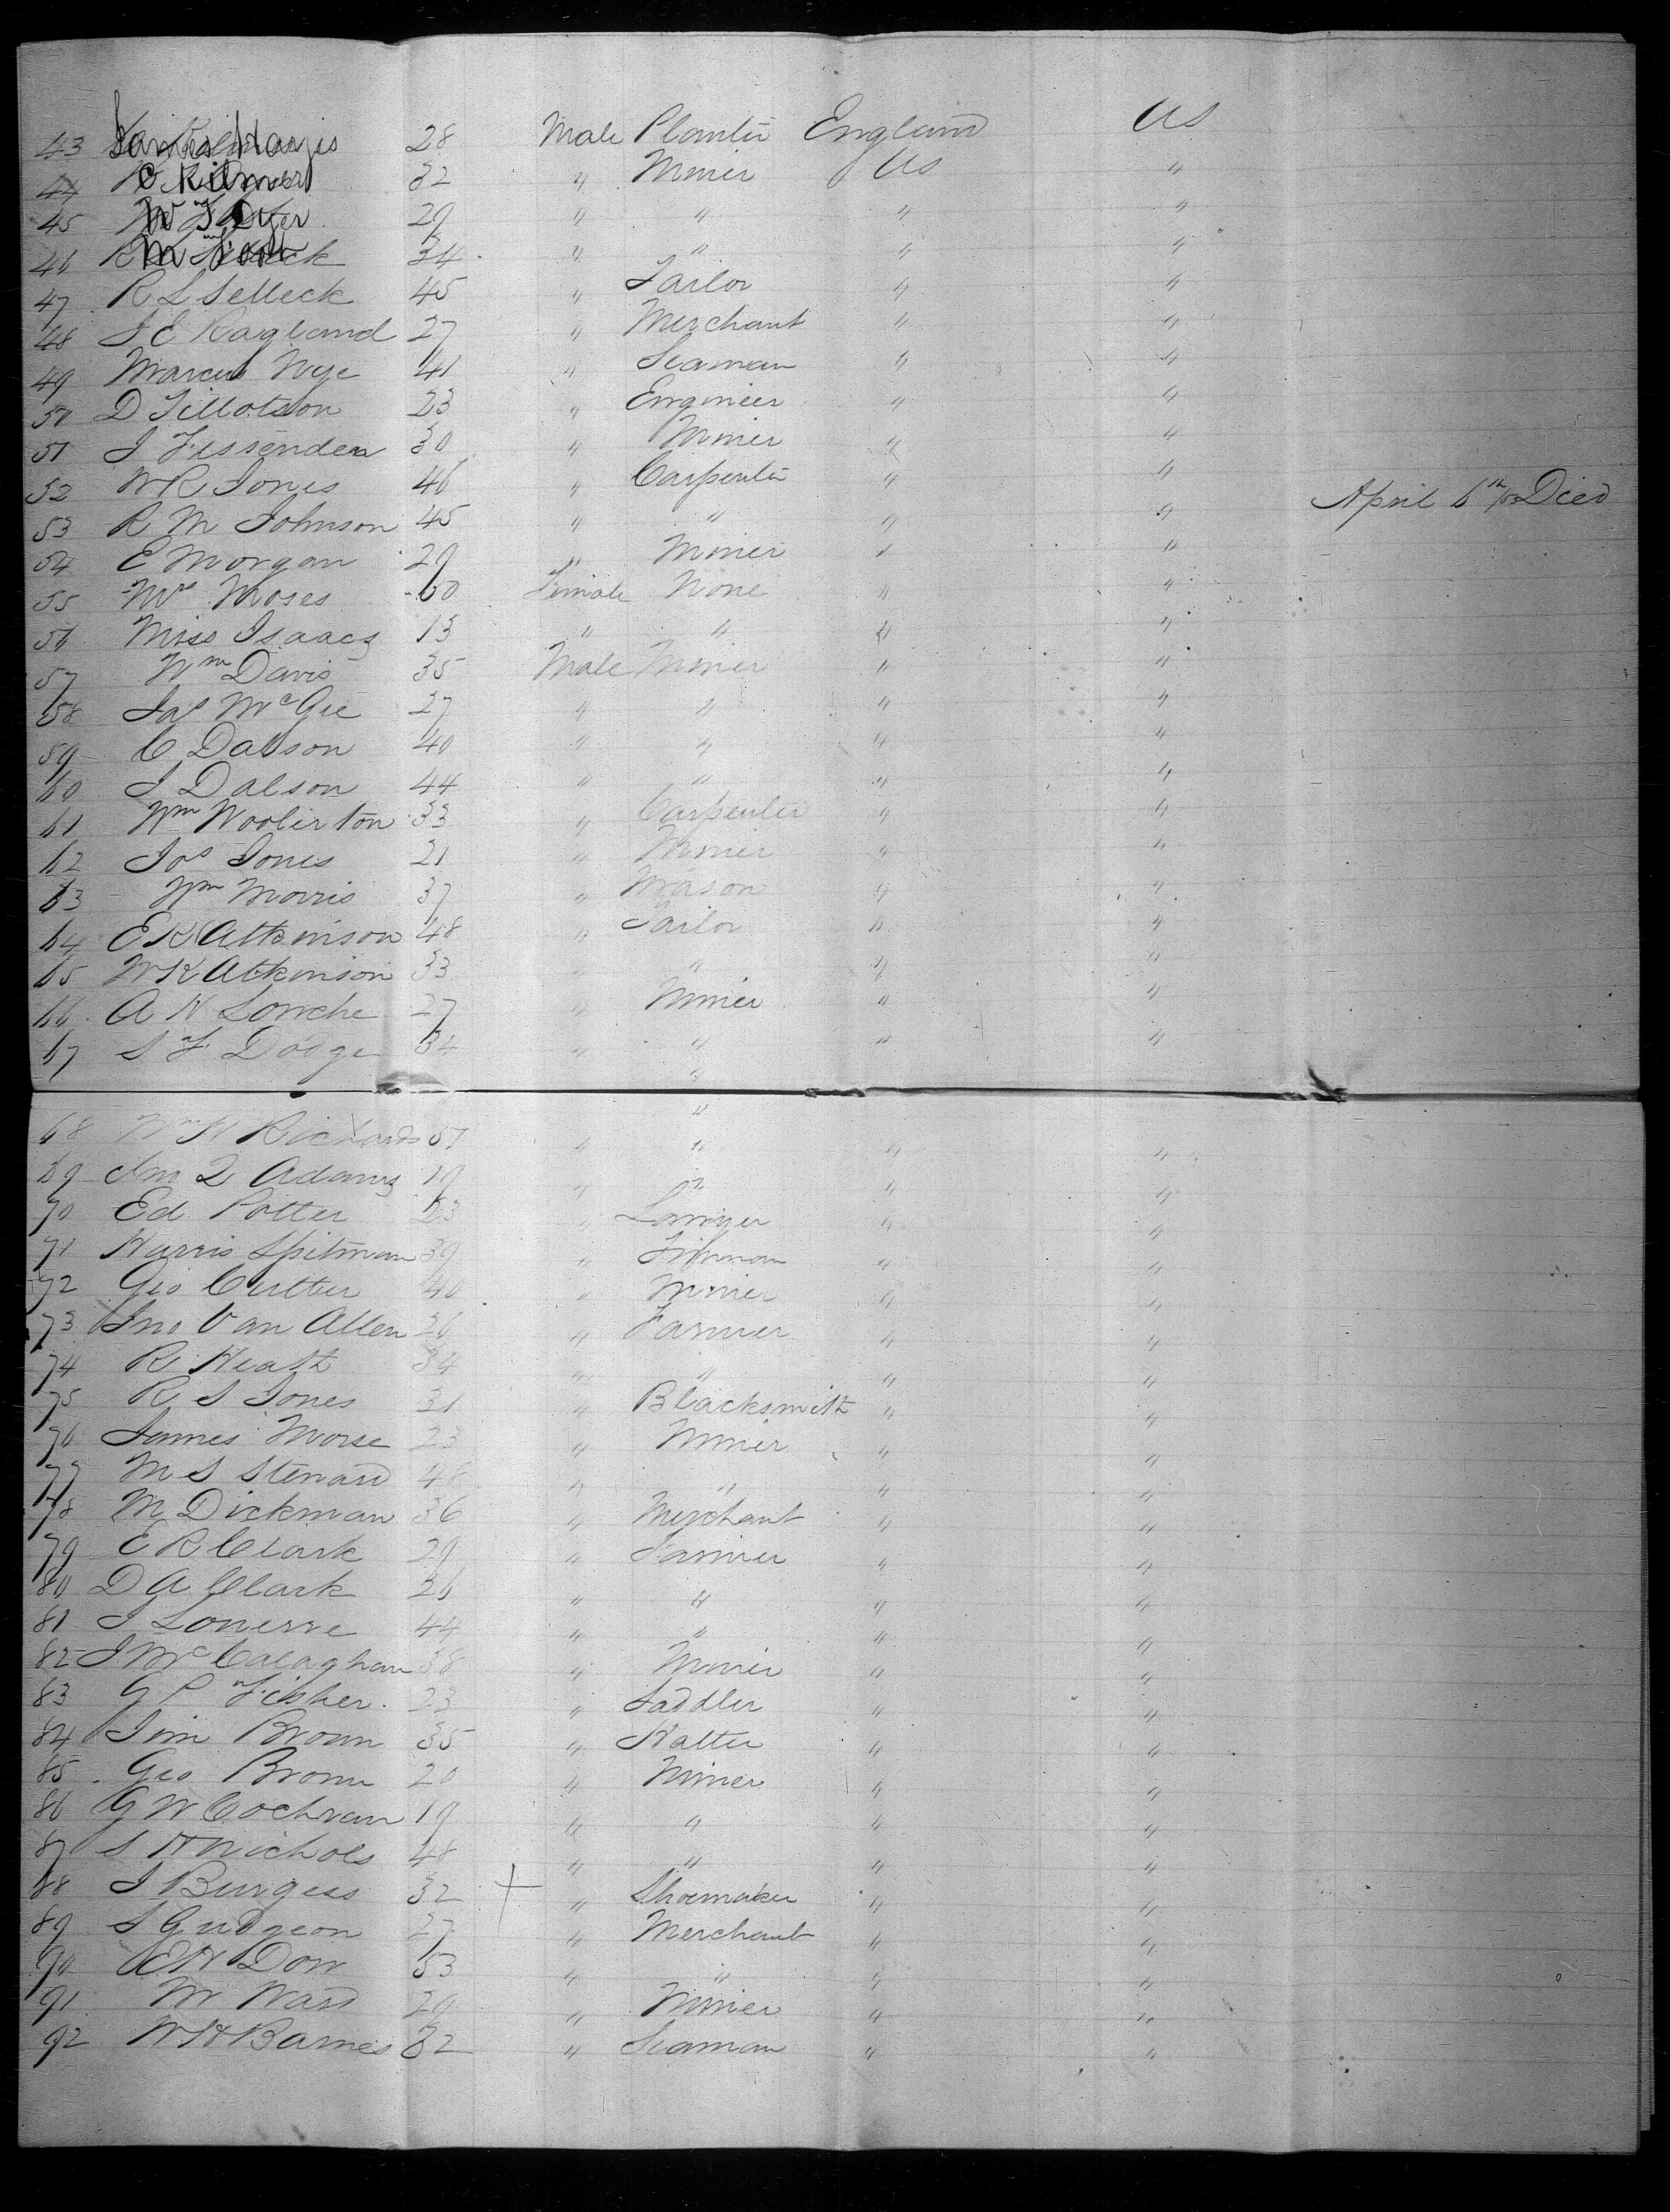 43 28 Male Planter England US
44 C Kilmer 32 " Miner US "
45 W F Dyer 29 " " " "
46 34 " " " "
47 R L Selleck 45 " Tailor " "
48 J E Ragland 27 " Merchant " "
49 Marcus Nye 41 " Seaman " "
50 D Tillotson 23 " Engineer " "
51 J Fessenden 30 " Miner " "
52 W R Jones 46 " Carpenter " "
53 R M Johnson 45 " " " " April 6th /53 Died
54 E Morgan 29 " Miner " "
55 Mrs Moses 60 Female None " "
56 Miss Isaacs 13 " " " "
57 Wm Davis 35 Male Miner " "
58 Jas McGee 27 " " " "
59 C Dalson 40 " " " "
60 J Dalson 44 " " " "
61 Wm Woolerton 33 " Carpenter " "
62 Jos Jones 21 " Miner " "
63 Wm Morris 37 " Mason " "
64 E K Atkinson 48 " Tailor " "
65 W K Atkinson 33 " " " "
66 A N 27 " Miner " "
67 S F Dodge 34 " " " "
68 Wm H Richards 51 " " " "
69 Jno Q Adams 19 " " " "
70 Ed Potter 23 " Lawyer " "
71 Harris Spitman 39 " " "
72 Geo Cutter 40 " Miner " "
73 Jno Van Allen 26 " Farmer " "
74 R Heath 34 " " " "
75 R S Jones 31 " Blacksmith " "
76 James Morse 23 " Miner " "
77 M S Steward 48 " " " "
78 M Dickman 36 " Merchant " "
79 E R Clark 29 " Farmer " "
80 D A Clark 26 " " " "
81 J 44 " " " "
82 J McCalaghan 38 " Miner " "
83 G P Fisher 23 " Saddler " "
84 Jim Brown 35 " Hatter " "
85 Geo Brown 20 " Miner " "
86 G W Cochran 19 " " " "
87 S H Nichols 48 " " " "
88 J Burgess 32 " Shoemaker " "
89 S Gudgeon 27 " Merchant " "
90 E H Dow 53 " " " "
91 W Ward 29 " Miner " "
92 W H Barnes 32 " Seaman " "